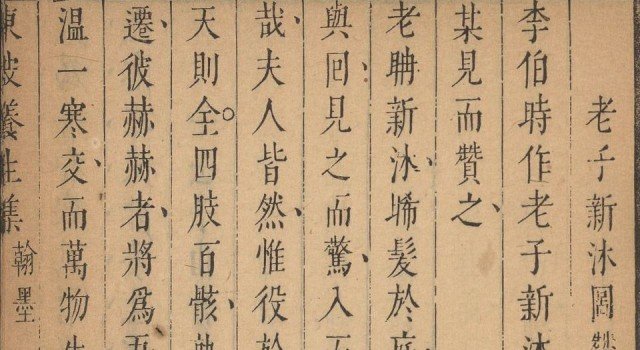 老子新沐圖
李伯時作老子新沐
某見而贊之
老聃新沐晞髮於庭
與回見之而驚入
哉夫人皆然惟役於
天則全四肢百骸
遷彼赫赫者將爲吾
溫一寒交而萬物生
東坡養生集 翰墨